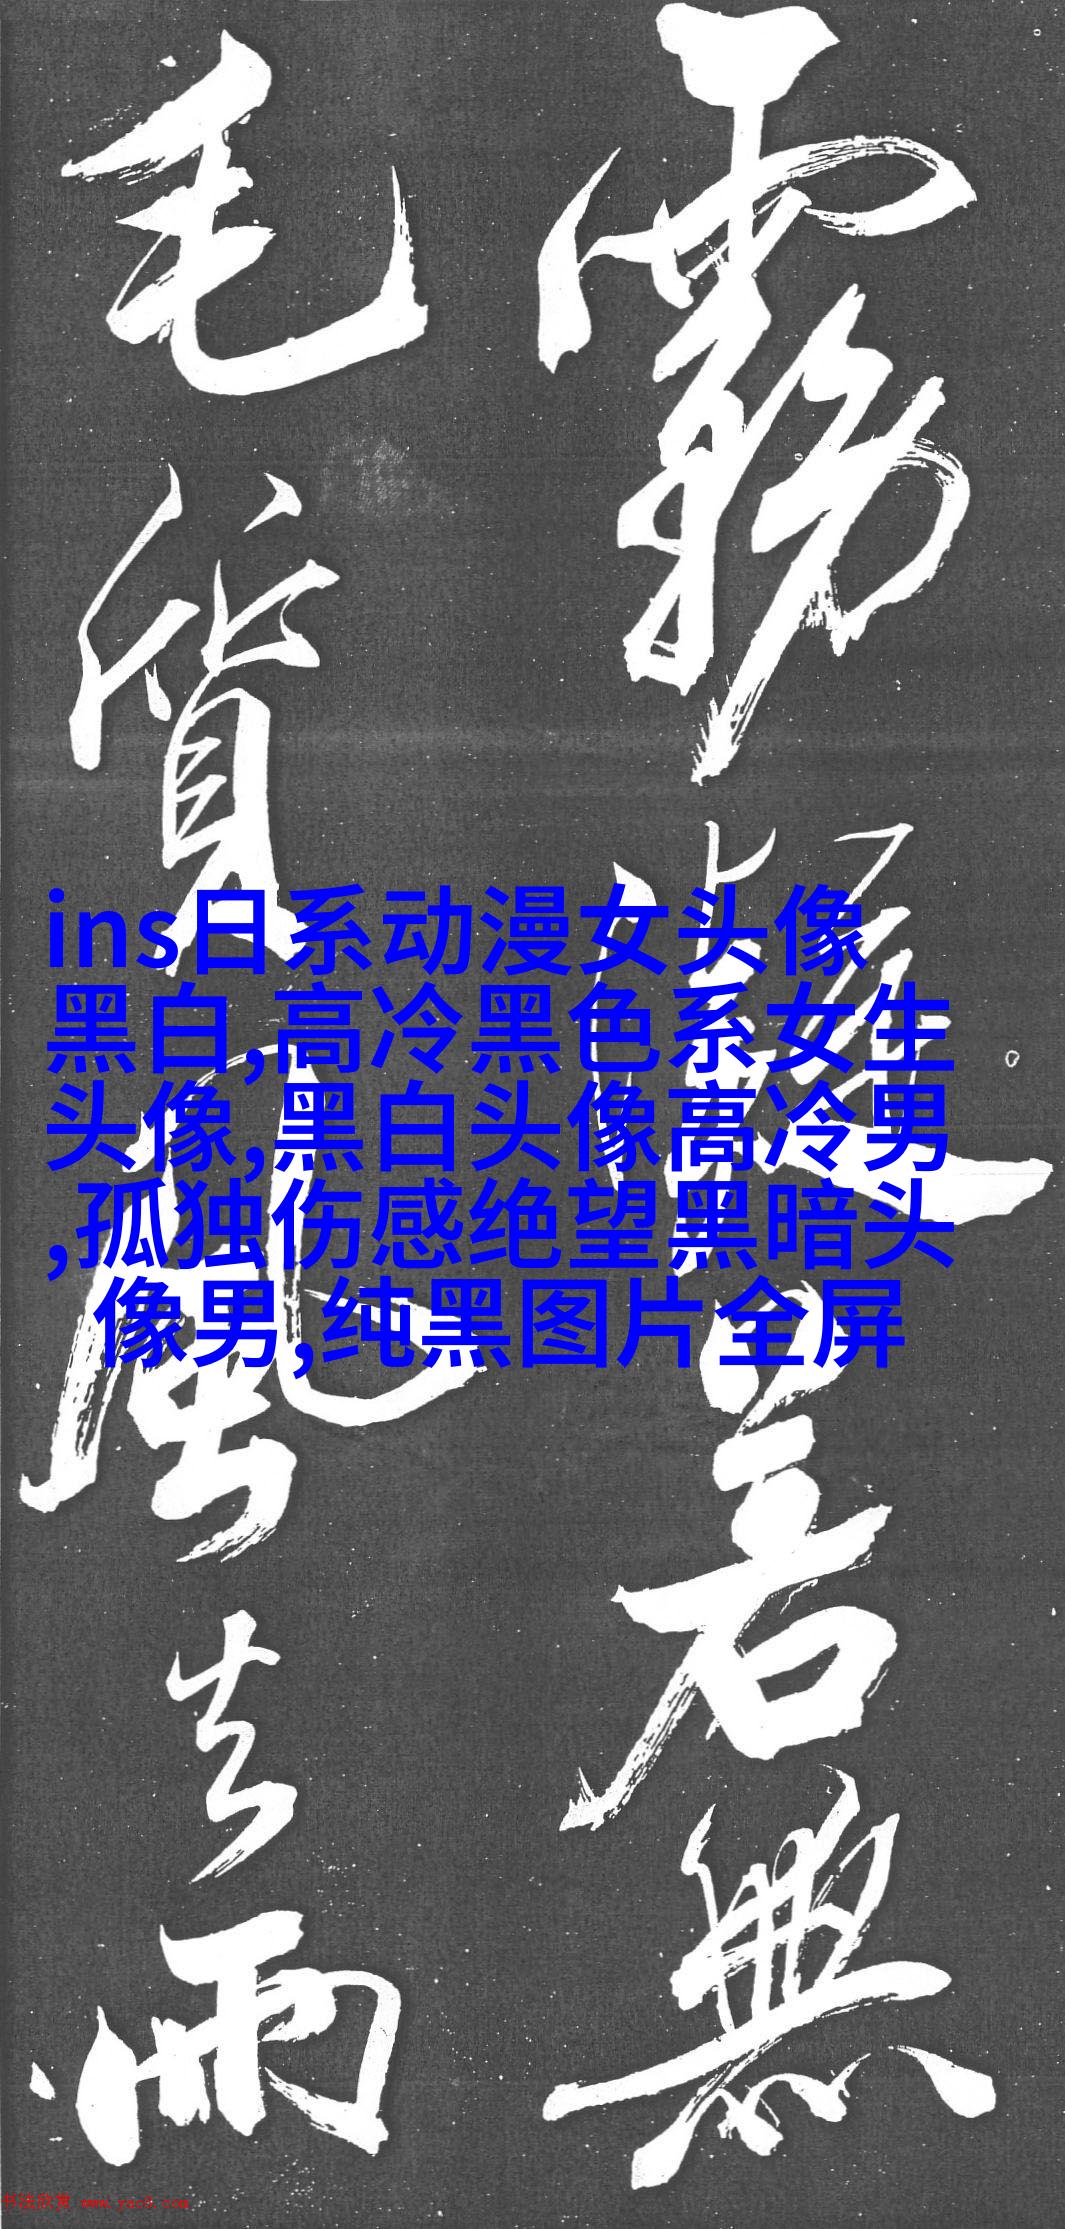 霧凝，若無
毛質風去雨
ins日系动漫女头像
黑白,高冷黑色系女生
头像,黑白头像高冷男
,孤独伤感绝望黑暗头
像男,纯黑图片全屏
书法欣赏 www.yac8.com